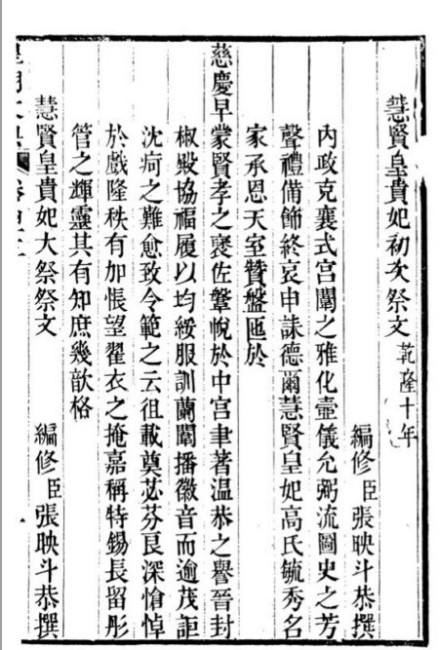 慧賢皇貴妃初次祭文 乾隆十年
編修臣張映斗恭撰
內政克襄式宫闈之雅化壼儀允弼流圖史之芳
聲禮備飾終哀申誄德爾慧賢皇妃高氏毓秀名
家承恩天室贊盤匜於
慈慶早蒙賢孝之褒佐鞶帨於中宫聿著温恭之譽晉封
椒殿協福履以均綏服訓蘭闈播徽音而逾茂詎
沈疴之難愈致令範之云徂載奠苾芬良深愴悼
於戲隆秩有加悵望翟衣之掩嘉稱特錫長留彤
管之輝靈其有知庶幾歆格
慧賢皇貴妃大祭祭文 編修臣張映斗恭撰
皇朝文典 卷